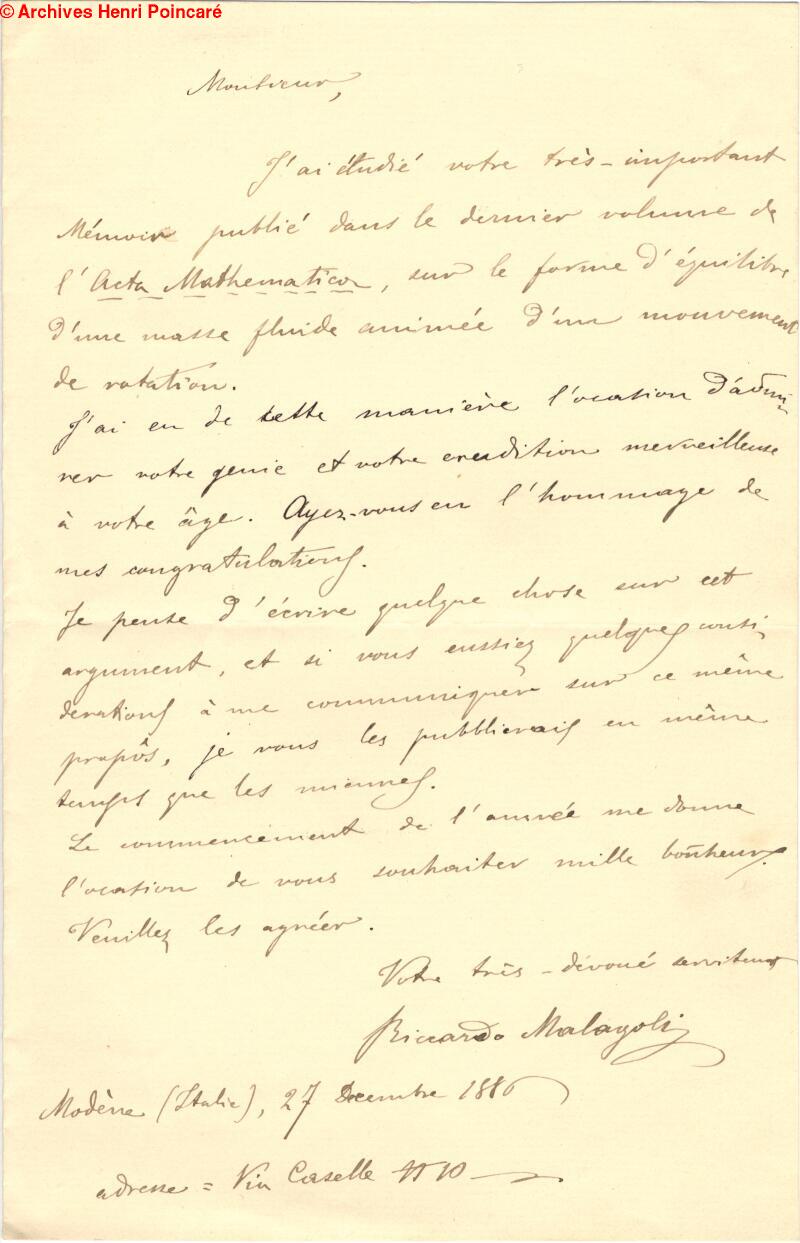 © Archives Henri Poincaré
Monsieur,
J'ai étudié votre très-important
Mémoir publié dans le dernier volume de
l'Acta Mathematica, sur le forme d'équilibre
d'une masse fluide animée d'un mouvement
de rotation.
J'ai eu de cette manière l'ocasion d'admi-
rer votre genie et votre erudition merveilleuse
à votre âge. Ayez-vous en l'hommage de
mes congratulations.
Je pense d'écrire quelque chose sur cet
argument, et si vous eussiez quelques consi-
derations à me communiquer sur ce même
propôs, je vous les pubblierais en même
temps que les miennes.
Le commencement de l'année me donne
l'ocation de vous souhaiter mille bonheurs.
Veuillez les agréer.
Votre très-dévoué serviteur
Riccardo Malagoli
Modène (Italie), 27 Decembre 1886
adresse = Via Caselle 10